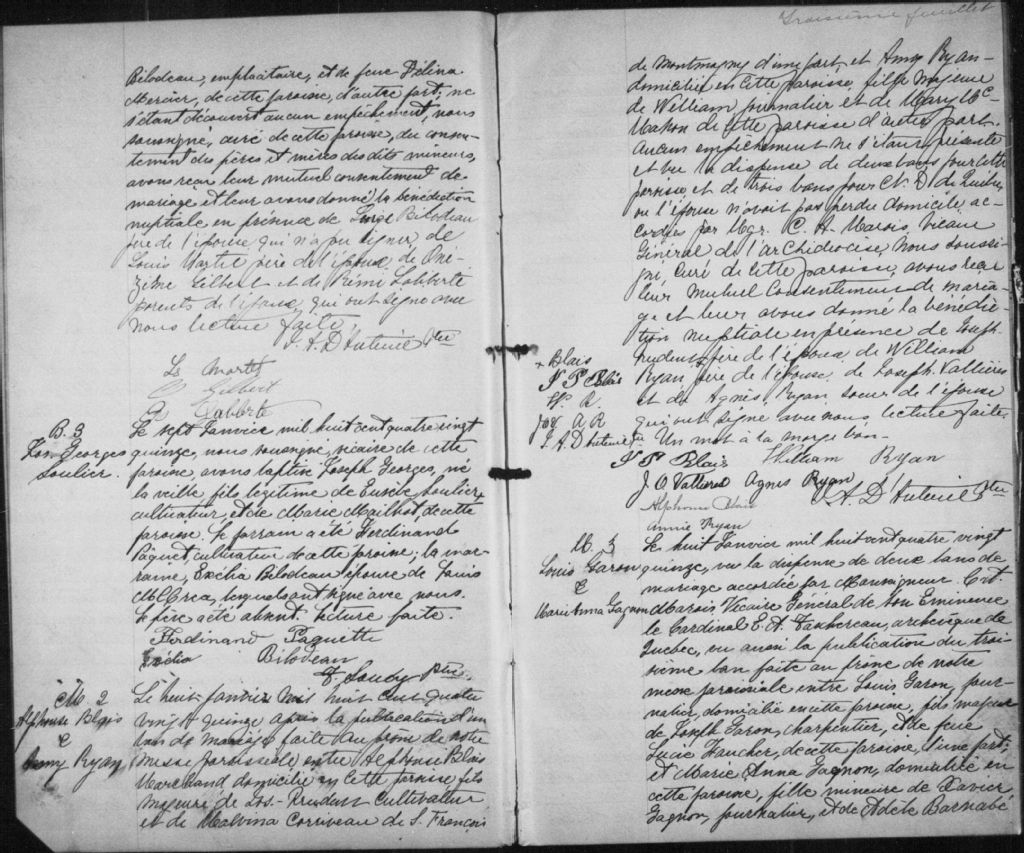 Bilodeau, emplacitaire, et de feue Délina
Mercier, de cette paroisse, d'autre part; ne
s'étant découvert aucun empêchement, nous
soussigné, curé de cette paroisse, du consen-
tement des pères et mères des dits mineurs,
avons reçu leur mutuel consentement de
mariage et leur avons donné la bénédiction
nuptiale en présence de Bilodeau
père de l'épouse qui n'a pu signer, de
Louis père de l'époux, de Oné-
zime Gilbert et de Rémi Laliberté
parents de l'époux, qui ont signé avec
nous lecture faite
J. A. D'Auteuil Ptre
Ls
O Gilbert
R Laliberté
B. 3
Jos. Georges
Soulier.
Le sept Janvier mil huit cent quatre vingt
quinze, nous, soussigné, vicaire de cette
paroisse, avons baptisé Joseph Georges, né
la veille, fils légitime de Eusèbe Soulier,
cultivateur, et de Marie Mailhot, de cette
paroisse. Le parrain a été Ferdinand
Paquet, cultivateur de cette paroisse; la mar-
raine, Exélia Bilodeau épouse de Louis
McCrea, lesquels ont signé avec nous.
Le père a été absent. Lecture faite.
Ferdinand Paquette
Exélia Bilodeau
Ptre.
M. 2
Alphonse Blais
&
Anny Ryan
Le huit Janvier mil huit cent quatre
vingt quinze après la publication d'un
ban de mariage faite au prône de notre
messe paroissiale entre Alphonse Blais
Marchand domicilié en cette paroisse fils
majeur de Jos.-Prudent Cultivateur
et de Malvina Corriveau de S. François
Troisième feuillet
de Montmagny d'une part, et Anny Ryan-
domiciliée en cette paroisse, fille majeure
de William journalier et de Mary Mc
Mahon de cette paroisse d'autre part.
Aucun empêchement ne s'étant présenté
et vu la dispense de deux bans pour cette
paroisse et de trois bans pour N. D. de Québec
où l'épouse n'avait pas perdu domicile ac-
cordée par Mgr. C. A. Marois, vicaire
Général de l'archidiocèse, nous soussi-
gné, curé de cette paroisse, avons reçu
leur mutuel consentement de maria-
ge et leur avons donné la bénédic-
tion nuptiale en présence de Joseph
Prudent, père de l'époux, de William
Ryan, père de l'épouse, de Joseph Vallières
et de Agnès Ryan soeur de l'épouse
qui ont signé avec nous lecture faite
Un mot à la marge bon-
+ Blais
J P Blais
W. R.
A R
J. A D'Auteuil
J P Blais William Ryan
J. O. Vallières Agnes Ryan
J. A. D'Auteuil Ptre
Alphonse Blais
Annie Ryan
M. 3
Louis Garon
&
Marie Anna Gagnon
Le huit Janvier mil huit cent quatre vingt
quinze, vu la dispense de deux bans de
mariage accordée par Monseigneur
Marois Vicaire Général de Son Eminence
le Cardinal E. A. Taschereau, archevêque de
Québec, vu aussi la publication du troi-
sième ban faite au prône de notre
messe paroissiale entre Louis Garon, jour-
nalier, domicilié en cette paroisse, fils majeur
de Joseph Garon, charpentier, et de feue
Lucie Faucher, de cette paroisse, d'une part;
et Marie Anna Gagnon, domiciliée en
cette paroisse, fille mineure de Xavier
Gagnon, journalier, et de Adèle Barnabé